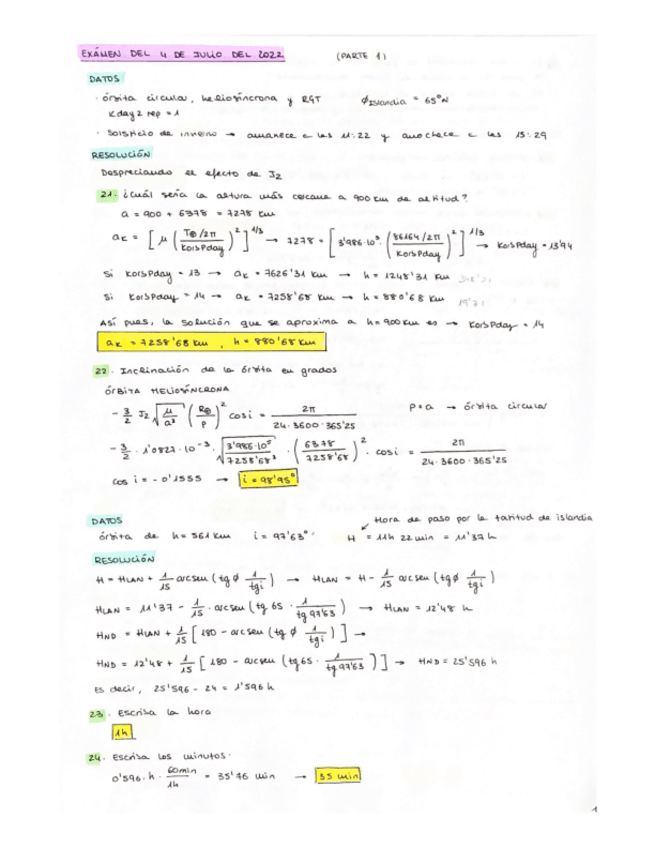 EXÁMEN DEL 4 DE JULIO DEL 2022 (PARTE 1)
DATOS
· órbita circular, heliosíncrona y RGT ϕIslandia = 65°N
Kday2rep = 1
· Solsticio de invierno → amanece a las 11:22 y anochece a las 15:29
RESOLUCIÓN
Despreciando el efecto de J2
21. ¿Cuál sería la altura más cercana a 900 km de altitud?
a = 900 + 6378 = 7278 km
aK = [μ (T⊕/2π / KorsPday)²]^1/3 → 7278 = [3'986·10⁵ (86164/2π / KorsPday)²]^1/3 → KorsPday = 13'94
Si KorsPday = 13 → aK = 7626'31 km → h = 1248'31 km
Si KorsPday = 14 → aK = 7258'68 km → h = 880'68 km
Así pues, la solución que se aproxima a h = 900 km es → KorsPday = 14
aK = 7258'68 km, h = 880'68 km
22. Inclinación de la órbita en grados
ÓRBITA HELIOSÍNCRONA
- 3/2 J2 √(μ/a³) (R⊕/p)² cos i = 2π / 24·3600·365'25 p = a → órbita circular
- 3/2 · 1'0827·10⁻³ · √(3'986·10⁵ / 7258'68³) · (6378 / 7258'68)² · cos i = 2π / 24·3600·365'25
cos i = -0'1555 → i = 98'95°
DATOS Hora de paso por la latitud de islandia
órbita de h = 561 km i = 97'63° H = 11h 22 min = 11'37 h
RESOLUCIÓN
H = HLAN + 1/15 arcsen (tg ϕ 1/tg i) → HLAN = H - 1/15 arcsen (tg ϕ 1/tg i)
HLAN = 11'37 - 1/15 · arcsen (tg 65 · 1/tg 97'63) → HLAN = 12'48 h
HND = HLAN + 1/15 [180 - arcsen (tg ϕ 1/tg i)] →
HND = 12'48 + 1/15 [180 - arcsen (tg 65 · 1/tg 97'63)] → HND = 25'596 h
Es decir, 25'596 - 24 = 1'596 h
23. Escriba la hora
1h
24. Escriba los minutos.
0'596 h · 60min/1h = 35'76 min → 35 min
1